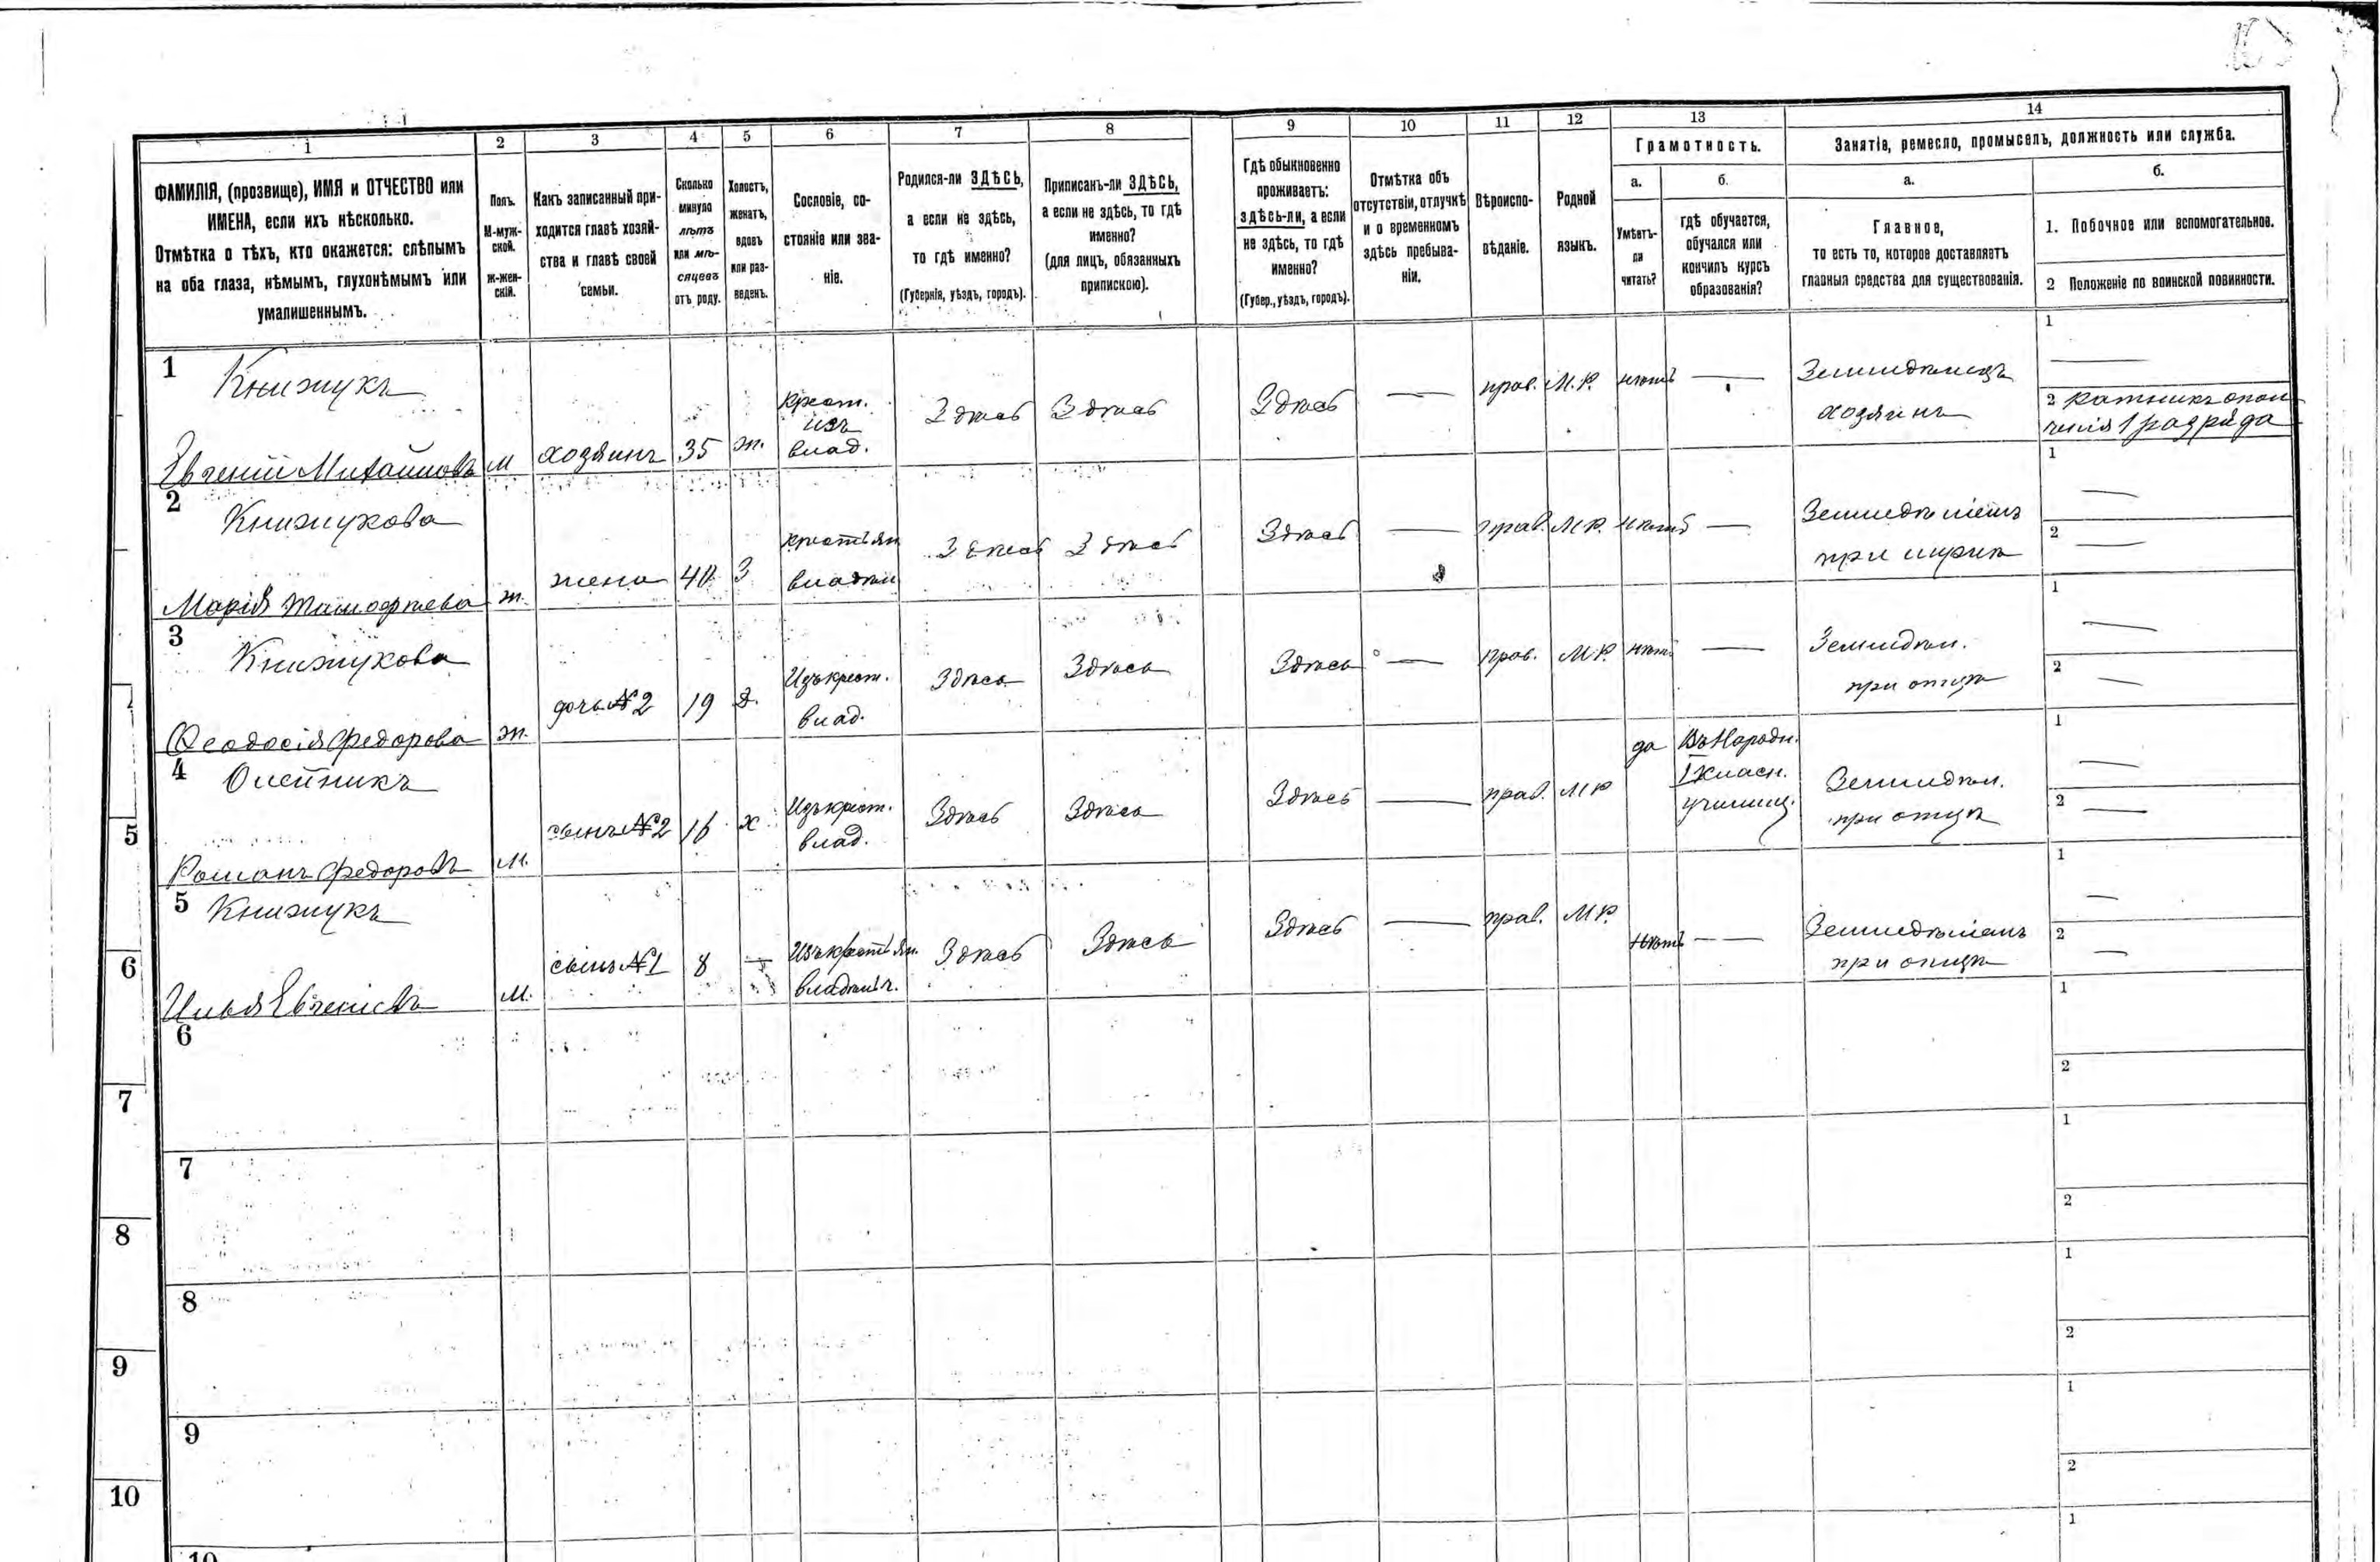 1
2
3
4
5
6
7
8
9
10
11
12
13
14
Грамотность.
Занятіе, ремесло, промыселъ, должность или служба.
ФАМИЛІЯ, (прозвище), ИМЯ и ОТЧЕСТВО или
ИМЕНА, если ихъ нѣсколько.
Отмѣтка о тѣхъ, кто окажется: слѣпымъ
на оба глаза, нѣмымъ, глухонѣмымъ или
умалишеннымъ.
Полъ.
М-муж-
ской.
Ж-жен-
скій.
Какъ записанный при-
ходится главѣ хозяй-
ства и главѣ своей
семьи.
Сколько
минуло
лѣтъ
или мѣ-
сяцевъ
отъ роду.
Холостъ,
женатъ,
вдовъ
или раз-
веденъ.
Сословіе, со-
стояніе или зва-
ніе.
Родился-ли ЗДѢСЬ,
а если не здѣсь,
то гдѣ именно?
(Губернія, уѣздъ, городъ).
Приписанъ-ли ЗДѢСЬ,
а если не здѣсь, то гдѣ
именно?
(для лицъ, обязанныхъ
припискою).
Гдѣ обыкновенно
проживаетъ:
здѣсь-ли, а если
не здѣсь, то гдѣ
именно?
(Губер., уѣздъ, городъ).
Отмѣтка объ
отсутствіи, отлучкѣ
и о временномъ
здѣсь пребыва-
ніи.
Вѣроиспо-
вѣданіе.
Родной
языкъ.
а.
Умѣетъ-
ли
читать?
б.
гдѣ обучается,
обучался или
кончилъ курсъ
образованія?
а.
Главное,
то есть то, которое доставляетъ
главныя средства для существованія.
б.
1. Побочное или вспомогательное.
2 Положеніе по воинской повинности.
1
Книжукъ
Евгеній Михайловъ
М
хозяинъ
35
ж.
Крест.
изъ
влад.
Здѣсь
Здѣсь
Здѣсь
—
прав.
М.Р.
нѣтъ
—
Земледѣлецъ
хозяинъ
1
—
2 Ратникъ опол
ченія 1 разряда
2
Книжукова
Марія Тимофѣева
ж.
жена
40
З
крестьян
владѣл
Здѣсь
Здѣсь
Здѣсь
—
прав.
М.Р.
нѣтъ
—
при мужѣ
1
—
2
—
3
Книжукова
Феодосія Федорова
ж.
дочь №2
19
д.
Изъ крест.
влад.
Здѣсь
Здѣсь
Здѣсь
—
прав.
М.Р.
нѣтъ
—
Земледѣл.
при отцѣ
1
—
2
—
4
Олейникъ
Романъ Федоровъ
М.
сынъ №2
16
х
Изъ крест.
влад.
Здѣсь
Здѣсь
Здѣсь
—
прав.
М Р
да
Въ Народн.
1 класн.
училищ.
Земледѣл.
при отцѣ
1
—
2
—
5
Книжукъ
Илья Евгеніевъ
М.
сынъ №1
8
—
Изъ крестьян.
владѣл.
Здѣсь
Здѣсь
Здѣсь
—
прав.
М Р.
нѣтъ
—
при отцѣ
1
—
2
—
6
1
2
7
1
2
8
1
2
9
1
2
10
1
5
6
7
8
9
10